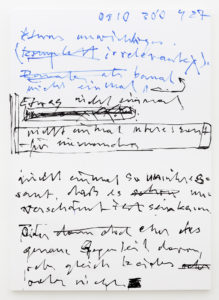 0810 300 427
Etwas unwichtiges.
(komplett irrelevantes).
nicht einmal
Etwas nicht einmal
nicht einmal interessant
für niemanden
nicht einmal so uninteres-
sant, daß es schon un-
verschämt sein kann
Oder doch eher das
genaue Gegenteil davon
oder gleich beides
oder nichts